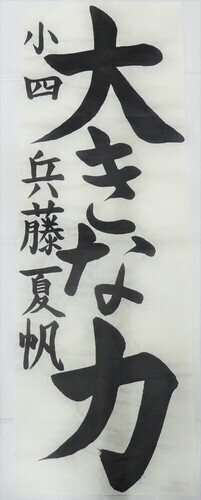 大きな力
小四 兵藤夏帆